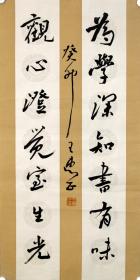 為學深知書有味
觀心澄覺室生光
癸卯